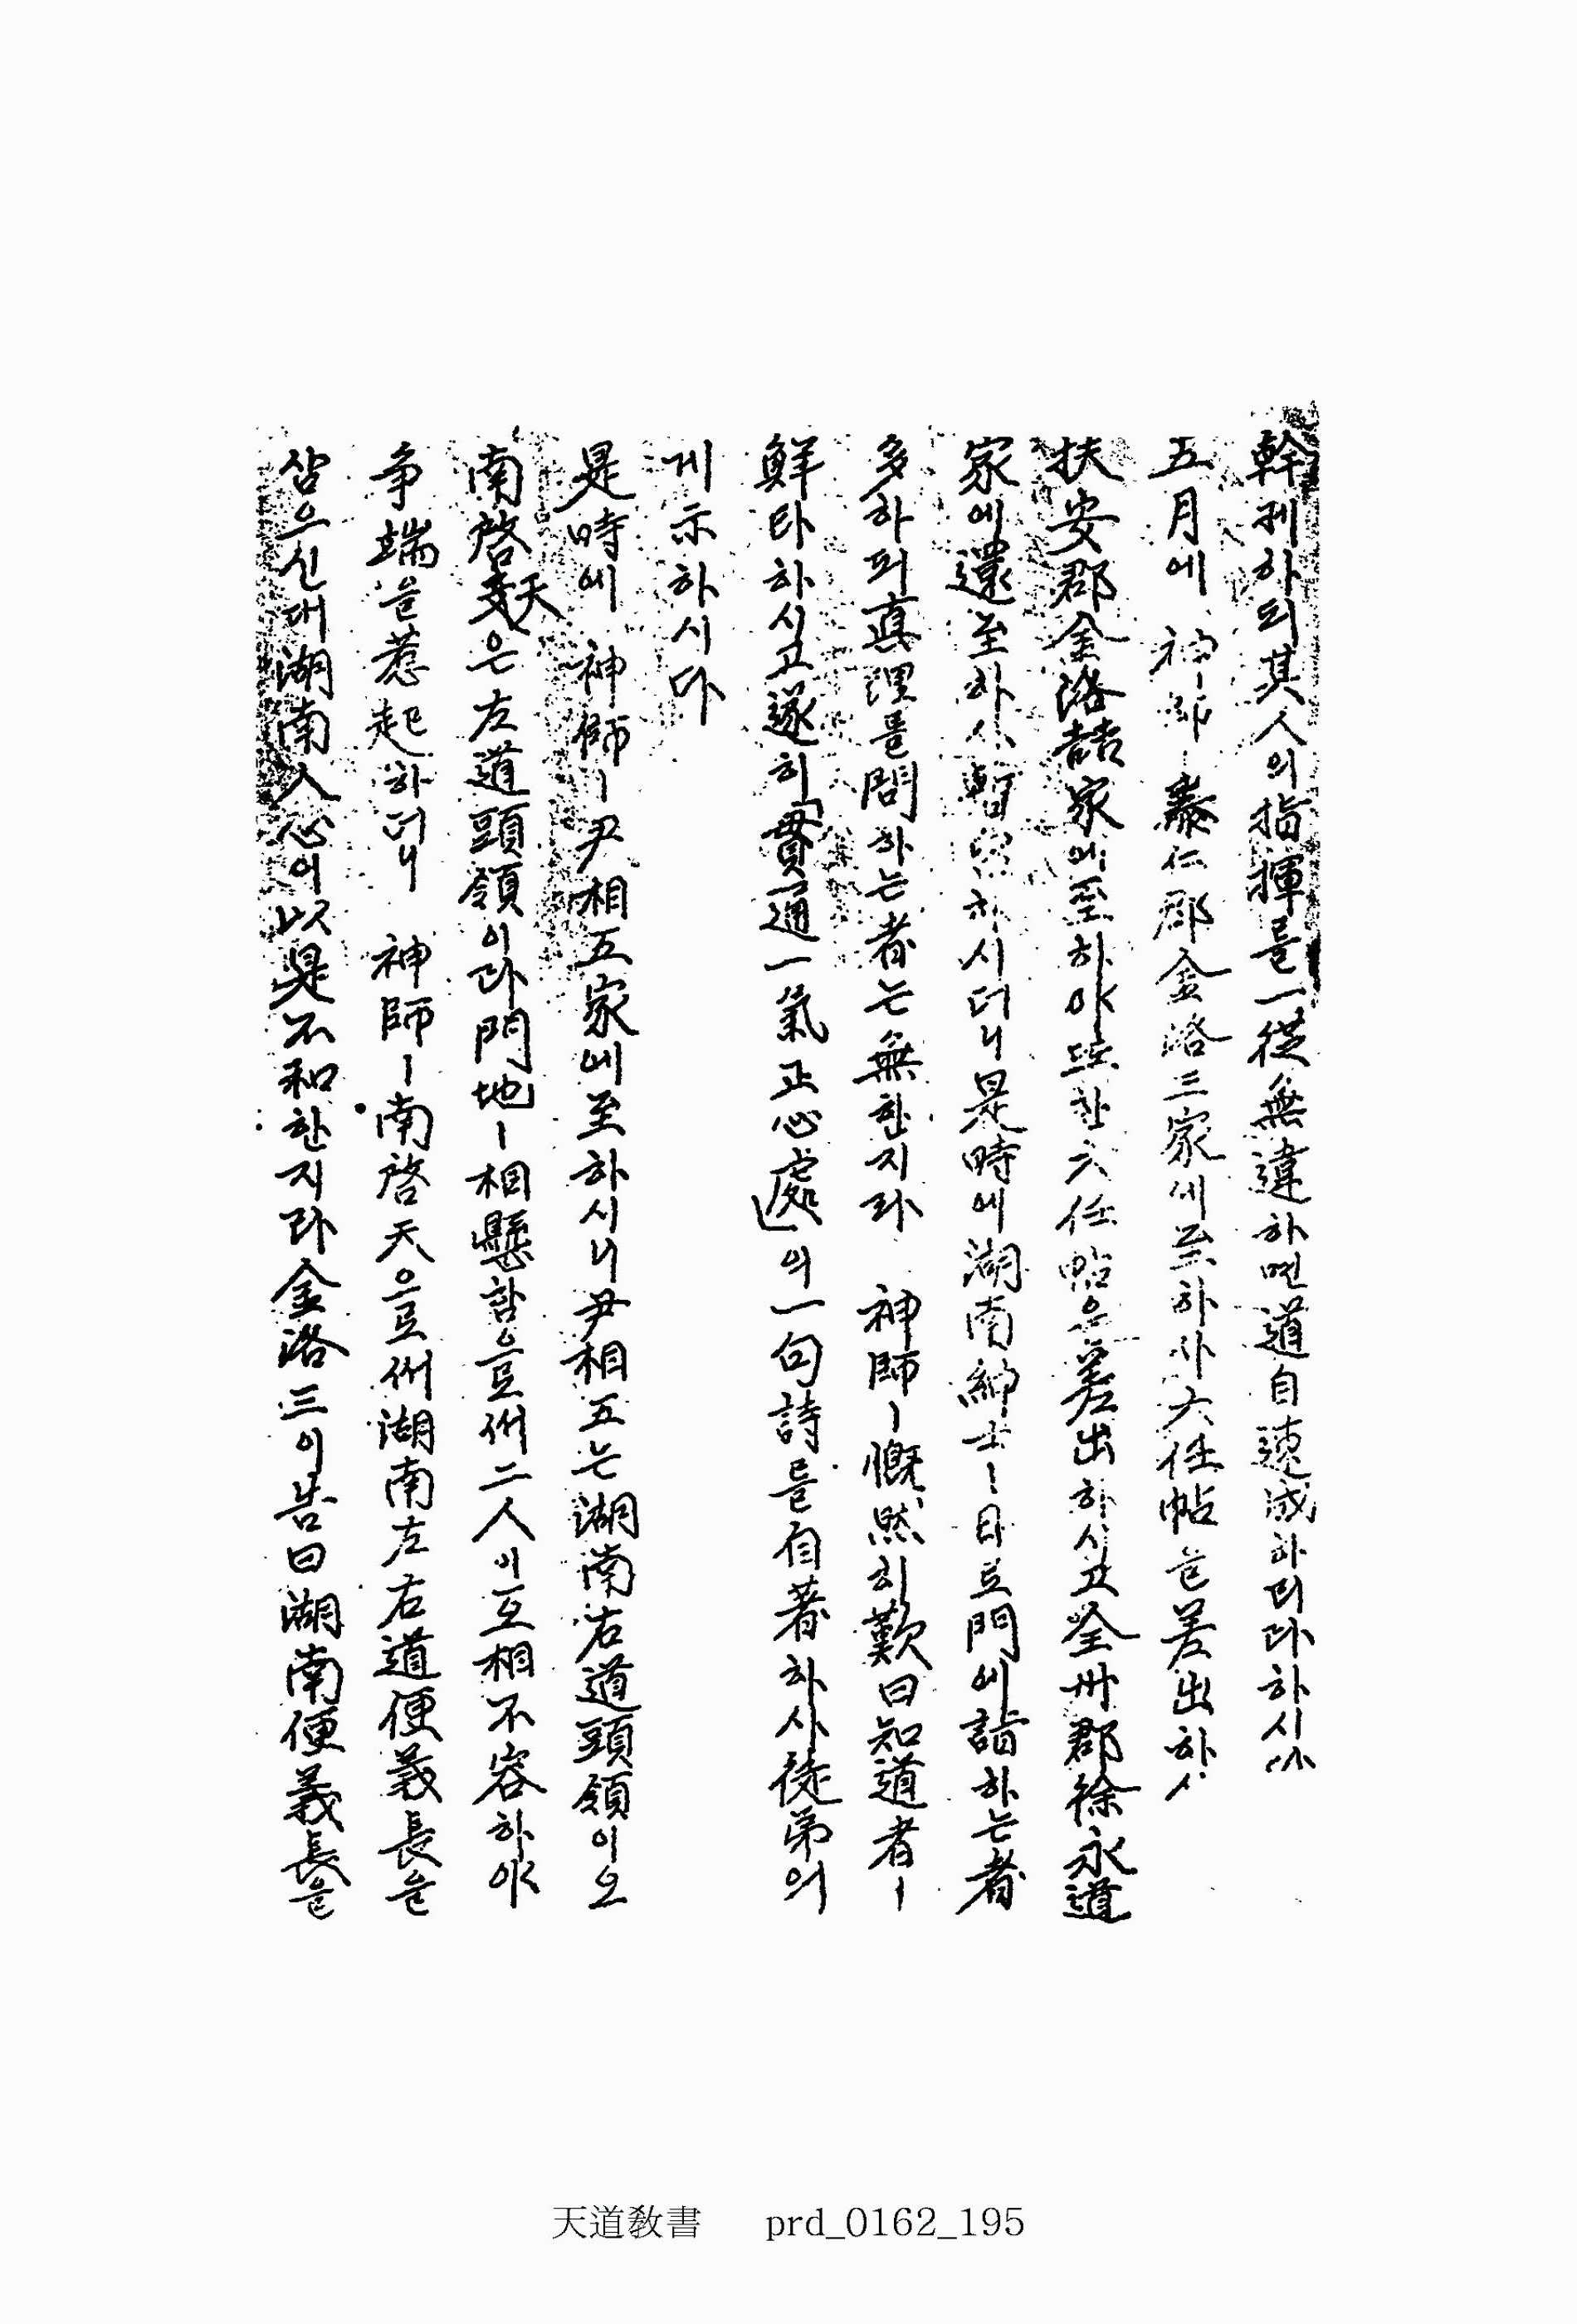 幹케하되其人의指揮를一從無違하면道自速成하리라하시다
五月에 神師ㅣ泰仁郡金洛三家에至하사六任帖을差出하시
扶安郡金洛喆家에至하야또한六任帖을差出하시고全州郡徐永道
家에還至하사暫留하시더니是時에湖南紳士ㅣ日로門에詣하는者
多하되眞理를問하는者는無한지라 神師ㅣ慨然히歎曰知道者ㅣ
鮮타하시고遂히「貫通一氣正心處」의一句詩를自著하사徒弟의
게示하시다
是時에 神師ㅣ尹相五家에至하시니尹相五는湖南右道頭領이오
南啓天은左道頭領이라門地ㅣ相懸함으로써二人이互相不容하야
爭端을惹起하더니 神師ㅣ南啓天으로써湖南左右道便義長을
삼으신대湖南人心이以是不和한지라金洛三이告曰湖南便義長을
天道敎書 prd_0162_195